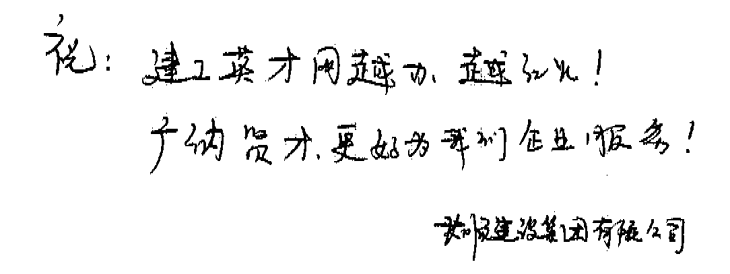 祝：建工英才网越办、越红火！
广纳贤才、更好为我们企业服务！
建设集团有限公司